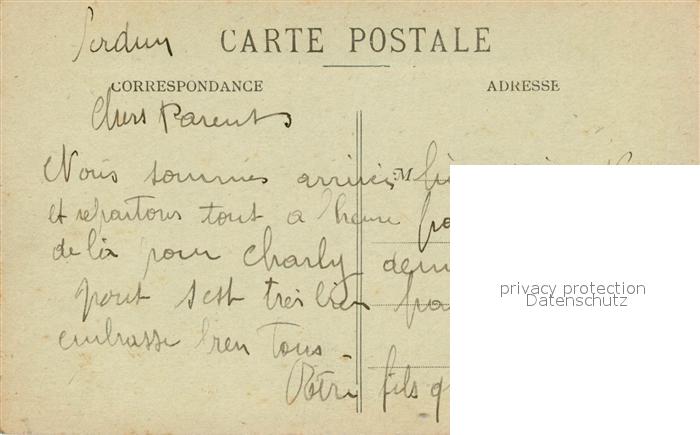 Verdun
CARTE POSTALE
CORRESPONDANCE
ADRESSE
Chers Parents
Nous sommes arrivés
M
et repartons tout a l'heure
de là pour Charly
privacy protection
Datenschutz
tout s'est très bien
embrasse bien tous -
Votre fils